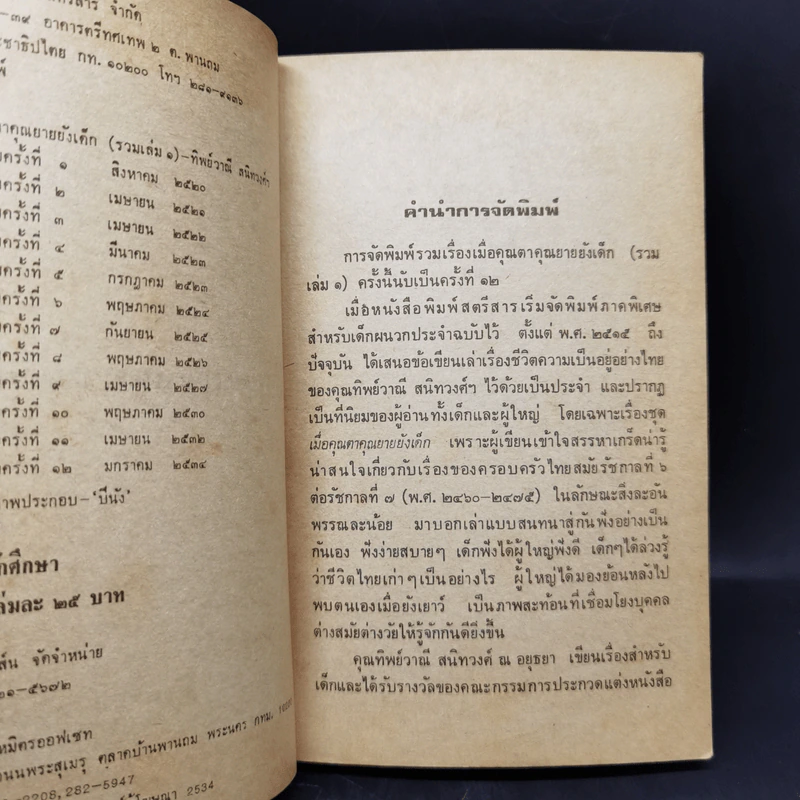 จำกัด
-๓๙ อาคารตรีทศเทพ ๒ ถ. พานถม
ประชาธิปไตย กท. ๑๐๒๐๐ โทฯ ๒๘๑-๙๑๓๖
ตาคุณยายยังเด็ก (รวมเล่ม ๑)-ทิพย์วาณี สนิทวงศ์ฯ
ครั้งที่ ๑ สิงหาคม ๒๕๒๐
ครั้งที่ ๒ เมษายน ๒๕๒๑
ครั้งที่ ๓ เมษายน ๒๕๒๒
ครั้งที่ ๔ มีนาคม ๒๕๒๓
ครั้งที่ ๕ กรกฎาคม ๒๕๒๓
ครั้งที่ ๖ พฤษภาคม ๒๕๒๔
ครั้งที่ ๗ กันยายน ๒๕๒๕
ครั้งที่ ๘ พฤษภาคม ๒๕๒๖
ครั้งที่ ๙ เมษายน ๒๕๒๗
ครั้งที่ ๑๐ พฤษภาคม ๒๕๓๐
ครั้งที่ ๑๑ เมษายน ๒๕๓๒
ครั้งที่ ๑๒ มกราคม ๒๕๓๔
ภาพประกอบ-'ปีนัง'
ศึกษา
เล่มละ ๒๕ บาท
จัดจำหน่าย
๒๑-๕๖๗๒
มิตรออฟเซท
ถนนพระสุเมรุ ตลาดบ้านพานถม พระนคร กทม.
2208, 282-5947
โฆษณา 2534
คำนำการจัดพิมพ์
การจัดพิมพ์รวมเรื่องเมื่อคุณตาคุณยายยังเด็ก (รวม
เล่ม ๑) ครั้งนี้นับเป็นครั้งที่ ๑๒
เมื่อหนังสือพิมพ์สตรีสารเริ่มจัดพิมพ์ภาคพิเศษ
สำหรับเด็กผนวกประจำฉบับไว้ ตั้งแต่ พ.ศ. ๒๕๑๕ ถึง
ปัจจุบัน ได้เสนอข้อเขียนเล่าเรื่องชีวิตความเป็นอยู่อย่างไทย
ของคุณทิพย์วาณี สนิทวงศ์ฯ ไว้ด้วยเป็นประจำ และปรากฏ
เป็นที่นิยมของผู้อ่านทั้งเด็กและผู้ใหญ่ โดยเฉพาะเรื่องชุด
เมื่อคุณตาคุณยายยังเด็ก เพราะผู้เขียนเข้าใจสรรหาเกร็ดน่ารู้
น่าสนใจเกี่ยวกับเรื่องของครอบครัวไทยสมัยรัชกาลที่ ๖
ต่อรัชกาลที่ ๗ (พ.ศ. ๒๔๖๐-๒๔๗๕) ในลักษณะสิ่งละอัน
พรรณละน้อย มาบอกเล่าแบบสนทนาสู่กันฟังอย่างเป็น
กันเอง ฟังง่ายสบายๆ เด็กฟังได้ผู้ใหญ่ฟังดี เด็กๆได้ล่วงรู้
ว่าชีวิตไทยเก่าๆเป็นอย่างไร ผู้ใหญ่ได้มองย้อนหลังไป
พบตนเองเมื่อยังเยาว์ เป็นภาพสะท้อนที่เชื่อมโยงบุคคล
ต่างสมัยต่างวัยให้รู้จักกันดียิ่งขึ้น
คุณทิพย์วาณี สนิทวงศ์ ณ อยุธยา เขียนเรื่องสำหรับ
เด็กและได้รับรางวัลของคณะกรรมการประกวดแต่งหนังสือ